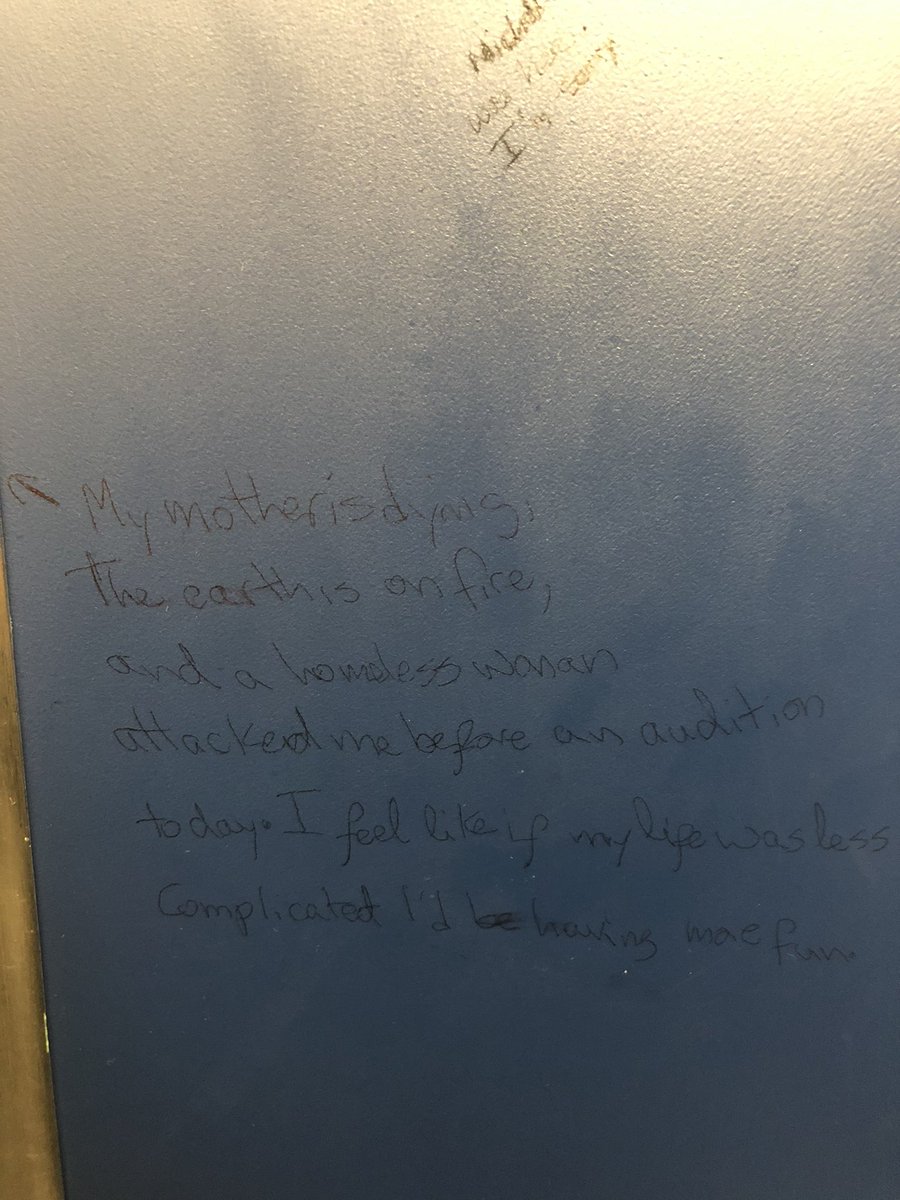 was here.
I'm sorry
My mother is dying,
the earth is on fire,
and a homeless woman
attacked me before an audition
today. I feel like if my life was less
Complicated I'd be having more fun.